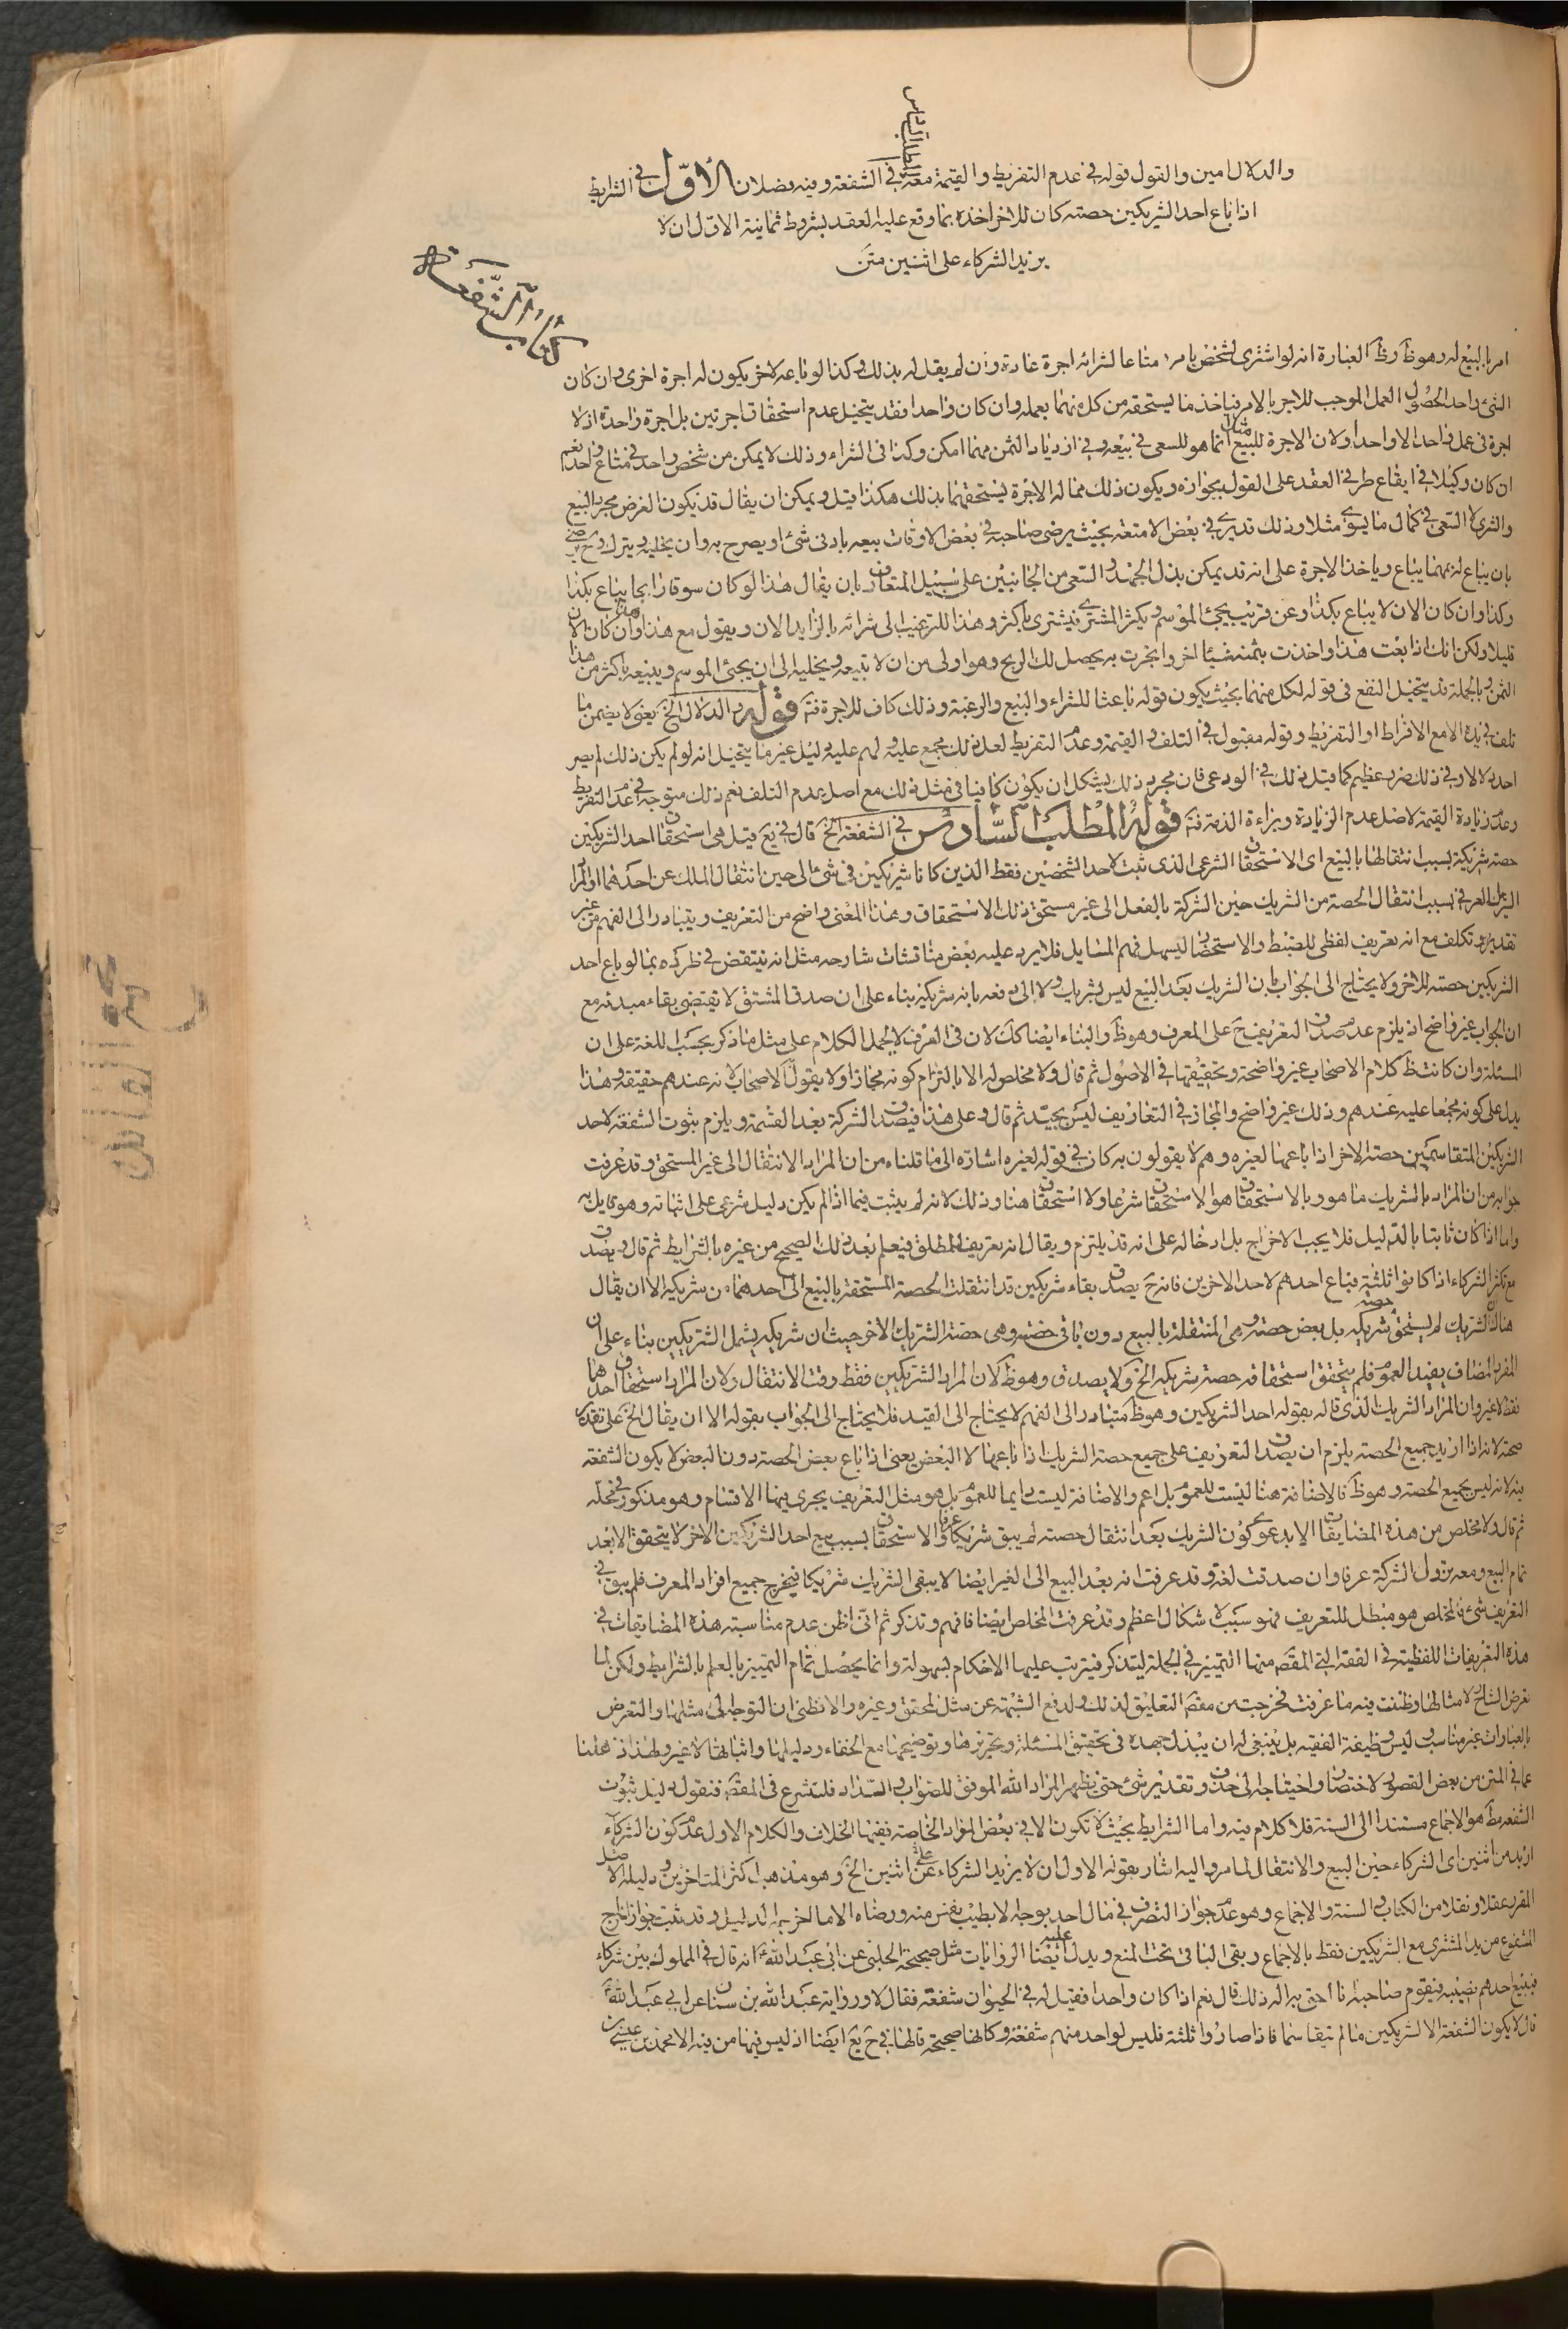 والدلال امين والقول قوله في عدم التفريط والقيمة معه المطلب السادس في الشفعة وفيه فضلان الأوّل في الشرايط
اذا باع احد الشريكين حصته كان للاخر اخذه بما وقع عليه العقد بشروط ثمانية الاول ان لا
يزيد الشركاء على اثنين متن
كتاب الشفعة
امر بالبيع له وهو ظ وظ العبارة انه لو اشترى لشخص بامره متاعا لشرائه اجرة عادة وان لم يقل له بذلك وكذا لو باعه لاخر يكون له اجرة اخرى وان كان
الشئ واحد الحصول العمل الموجب للاجر بالامر فياخذ ما يستحقه من كل منهما بعمله وان كان واحدا فقد يتخيل عدم استحقاق اجرتين بل اجرة واحدة اذ لا
اجرة في عمل واحد الا واحدا ولان الاجرة للبيع مثلا انما هو للسعى في بيعه وفي ازدياد الثمن مهما امكن وكذا في الشراء وذلك لا يمكن من شخص واحد في متاع واحد نعم
ان كان وكيلا في ايقاع طرفي العقد على القول بجوازه ويكون ذلك مما له الاجرة يستحقهما بذلك هكذا قيل ويمكن ان يقال قد يكون الغرض مجرد البيع
والشرى لا السعى في كمال ما يسوى مثلا وذلك قد يرى في بعض الامتعة بحيث يرضى صاحبه في بعض الاوقات ببيعه بادنى شئ او يصرح به وان يخليه ويترك وح يرضى
بان يباع له بهما يباع وياخذ الاجرة على انه قد يمكن بذل الجهد والسعى من الجانبين على سبيل المتعارف بان يقال هذا لو كان سوقا رايجا يباع بكذا
وكذا وان كان الان لا يباع بكذا وعن قريب يجئ الموسم ويكثر المشترى فيشترى باكثر وهذا للترغيب الى شرائه بالزايد الان ويقول مع هذا وان كان الان
قليلا ولكن انك اذا بعت هذا واخذت بثمنه شيئا اخر واتجرت به يحصل لك الربح وهو اولى من ان لا تبيعه ويخليه الى ان يجئ الموسم ويبيعه باكثر من هذا
الثمن وبالجملة قد يتخيل النفع في قوله لكل منهما بحيث يكون قوله باعثا للشراء والبيع والرغبة وذلك كاف للاجرة فت قوله والدلال الخ يعني لا يضمن ما
تلف في يده الا مع الافراط او التفريط وقوله مقبول في التلف والقيمة وعدم التفريط لعل ذلك مجمع عليه ولهم عليه دليل غير ما يتخيل انه لو لم يكن ذلك لم يصر
احد دلالا وفي ذلك ضرر عظيم كما قيل ذلك في الودعى فان مجرد ذلك يشكل ان يكون كافيا في مثل ذلك مع اصل عدم التلف نعم ذلك متوجه في عدم التفريط
وعدم زيادة القيمة لاصل عدم الزيادة وبراءة الذمة فت قوله المطلب السادس في الشفعة الخ قال في يع قيل هي استحقاق احد الشريكين
حصة شريكه بسبب انتقالها بالبيع اى الاستحقاق الشرعى الذى ثبت لاحد الشخصين فقط الذين كانا شريكين في شئ الى حين انتقال الملك عن احدهما او المراد
الشريك العرفي بسبب انتقال الحصة من الشريك حين الشركة بالفعل الى غير مستحق ذلك الاستحقاق وهذا المعنى واضح من التعريف ويتبادر الى الفهم من غير
تقدير وتكلف مع انه تعريف لفظى للضبط والاستحضار ليسهل فهم المسايل فلا يرد عليه بعض مناقشات شارحه مثل انه ينتقض في طرده بما لو باع احد
الشريكين حصته للاخر ولا يحتاج الى الجواب بان الشريك بعد البيع ليس بشريك ولا الى دفعه بانه شريكه بناء على ان صدق المشتق لا تقتضى بقاء مبدئه مع
ان الجواب غير واضح اذ يلزم عدم صدق التعريف ح على المعرف وهو ظ والبناء ايضا كك لان في العرف لا يحمل الكلام على مثل ما ذكر بحسب اللغة على ان
المسئلة وان كانت ظ كلام الاصحاب غير واضحة وتحقيقها في الاصول ثم قال ولا مخلص له الا بالتزام كونه مجازا ولا يقول الاصحاب لانه عندهم حقيقة وهذا
يدل على كونه مجمعا عليه عندهم وذلك غير واضح والمجاز في التعاريف ليس بجيّد ثم قال وعلى هذا فيصدق الشركة بعد القسمة ويلزم ثبوت الشفعة لاحد
الشريكين المتقاسمين حصة الاخر اذا باعها لغيره وهم لا يقولون به كان في قوله لغيره اشارة الى ما قلناه من ان المراد الانتقال الى غير المستحق وقد عرفت
جوابه من ان المراد بالشريك ما هو وبالاستحقاق هو الاستحقاق شرعا ولا استحقاق هنا وذلك لانه لم يثبت فيما اذا لم يكن دليل شرعى على اثباته وهو قايل به
واما اذا كان ثابتا بالدليل فلا يجب الاخراج بل ادخاله على انه قد يلتزم ويقال انه تعريف للمطلق فيعلم بعد ذلك الصحيح من غيره بالشرايط ثم قال ويصدق
مع تكثر الشركاء اذا كانوا ثلثة فباع احدهم لاحد الاخرين فانه ح يصدق بقاء شريكين قد انتقلت الحصة المستحقة بالبيع الى احدهما من شريكه الا ان يقال
هنا ان الشريك لم يستحق حصة شريكه بل بعض حصته وهي المنتقلة بالبيع دون باقي حصته وهي حصة الشريك الاخر حيث ان شريكه يشمل الشريكين بناء على ان
المفرد المضاف يفيد العموم فلم يتحقق استحقاقه حصة شريكه الخ ولا يصدق وهو ظ لان المراد الشريكين فقط وقت الانتقال ولان المراد استحقاق احدهما
فقط لا غير وان المراد الشريك الذى قاله بقوله احد الشريكين وهو ظ متبادر الى الفهم لا يحتاج الى القيد فلا يحتاج الى الجواب بقوله الا ان يقال الخ على تقدير
صحته لانه اذا اريد جميع الحصة يلزم ان يصدق التعريف على جميع حصة الشريك اذا باعها لا البعض يعنى اذا باع بعض الحصة دون البعض لا يكون الشفعة
فيه لانه ليس بجميع الحصة وهو ظ فالاضافة هنا ليست للعموم بل اعم والاضافة ليست دايما للعموم بل هو مثل التعريف يجرى فيها الاقسام وهو مذكور في محله
ثم قال ولا مخلص من هذه المضايقات الا بدعوى كون الشريك بعد انتقال حصته لم يبق شريكا عرفا والاستحقاق بسبب بيع احد الشريكين الاخر لا يتحقق الا بعد
تمام البيع ومعه يزول الشركة عرفا وان صدقت لغة وقد عرفت انه بعد البيع الى الغير ايضا لا يبقى الشريك شريكا فيخرج جميع افراد المعرف فلم يبق في
التعريف شئ فالمخلص هو مبطل للتعريف فهو سبب لاشكال اعظم وقد عرفت المخلص ايضا فافهم وتذكر ثم انى اظن عدم مناسبة هذه المضايقات في
هذه التعريفات اللفظية في الفقه التي المقصد منها التمييز في الجملة ليتذكر فيترتب عليها الاحكام بسهولة وانما يحصل تمام التمييز بالعلم بالشرايط ولكن لما
تعرض الشارح لامثالها وظننت فيه ما عرفت فخرجت من مقصد التعليق لذلك ولدفع الشبهة عن مثل المحقق وغيره والا نظنى ان التوجه الى مثلها والتعرض
بالعبارات غير مناسب وليس وظيفة الفقيه بل ينبغى له ان يبذل جهده في تحقيق المسئلة وتحريرها وتوضيحها مع الخفاء ودليلها واثباتها لا غير ولهذا ذهلنا
عما في المتن من بعض القصور والاختصار واحتياجه الى حذف وتقدير شئ حتى يظهر المراد الله الموفق للصواب والسداد فلنشرع في المقصد فنقول دليل ثبوت
الشفعة هو الاجماع مستندا الى السنة فلا كلام فيه واما الشرايط بحيث لا تكون الا في بعض المواد الخاصة ففيها الخلاف والكلام الاول عدم كون الشركاء
ازيد من اثنين اى الشركاء حين البيع والانتقال لما مر واليه اشار بقوله الاول ان لا يزيد الشركاء على اثنين الخ وهو مذهب اكثر المتاخرين ودليله الاصل
المقرر عقلا ونقلا من الكتاب والسنة والاجماع وهو عدم جواز التصرف في مال احد بوجه لا بطيب نفس منه ورضاه الا ما اخرجه الدليل وقد ثبت جواز اخراج
المشفوع من يد المشترى مع الشريكين فقط بالاجماع وبقى الباقى تحت المنع ويدل عليه ايضا الروايات مثل صحيحة الحلبى عن ابى عبد الله ع انه قال في المملوك بين شركاء
فيبيع احدهم نصيبه فيقوم صاحبه انا احق به اله ذلك قال نعم اذا كان واحدا فقيل له في الحيوان شفعة فقال لا ورواية عبد الله بن سنان عن ابى عبد الله ع
قال لا يكون الشفعة الا لشريكين ما لم يتقاسما فاذا صاروا ثلثة فليس لواحد منهم شفعة وكانها صحيحة قالها في ح يع ايضا اذ ليس فيها من فيه الا محمد بن عيسى بن